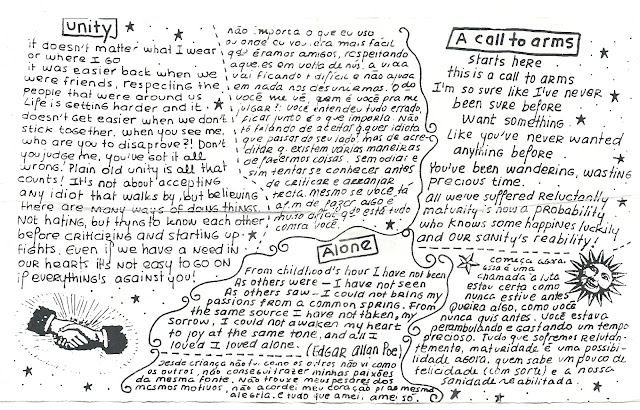 unity
it doesn't matter what I wear
or where I go
it was easier back when we
were friends, respecting the
people that were around us
Life is getting harder and it
doesn't get easier when we don't
stick together. when you see me,
who are you to disaprove?! Don't
you judge me, you've got it all
wrong. Plain old unity is all that
counts! It's not about accepting
any idiot that walks by, but believing
there are many ways of doing things.
Not hating, but trying to know each other
before criticizing and starting up
fights. Even if we have a need in
our hearts it's not easy to go on
if everything's against you!
não importa o que eu uso
ou onde eu vou. era mais fácil
qdo éramos amigos, respeitando
aqueles em volta de nós. a vida
vai ficando + difícil e não ajuda
em nada nos desunirmos. Qdo
você me vê, quem é você pra me
julgar?! você entendeu tudo errado
ficar junto é o que importa. Não
tô falando de aceitar qquer idiota
que passar do seu lado, mas de acre-
ditar q. existem várias maneiras
de fazermos coisas. Sem odiar e
sim tentar se conhecer antes
de criticar e arranjar
treta. mesmo se você tá
afim de fazer algo é
muito difícil qdo está tudo
contra você.
A call to arms
starts here
this is a call to arms
I'm so sure like I've never
been sure before
Want something
Like you've never wanted
anything before
You've been wandering, wasting
precious time.
all we've suffered Reluctantly
maturity is now a probability
who knows some happines luckily
and our sanity's reability!
começa agora.
essa é uma
chamada à luta
estou certa como
nunca estive antes
Queira algo, como você
nunca quis antes. Você estava
perambulando e gastando um tempo
precioso. Tudo que sofremos Relutan-
temente, maturidade é uma possibi-
lidade agora, quem sabe um pouco de
felicidade (com sorte) e a nossa
sanidade reabilitada.
Alone
From childhood's hour I have not been
As others were - I have not seen
As others saw - I could not bring my
passions from a common spring. From
the same source I have not taken, my
sorrow, I could not awaken my heart
to joy at the same tone, and all I
loved I loved alone. (EDgAR Allan Poe)
Desde criança não fui como os outros não vi como
os outros, não consegui trazer minhas paixões
da mesma fonte. Não trouxe meu pesar dos
mesmos motivos, não acordei meu coração pra mesma
alegria. E tudo que amei, amei só.